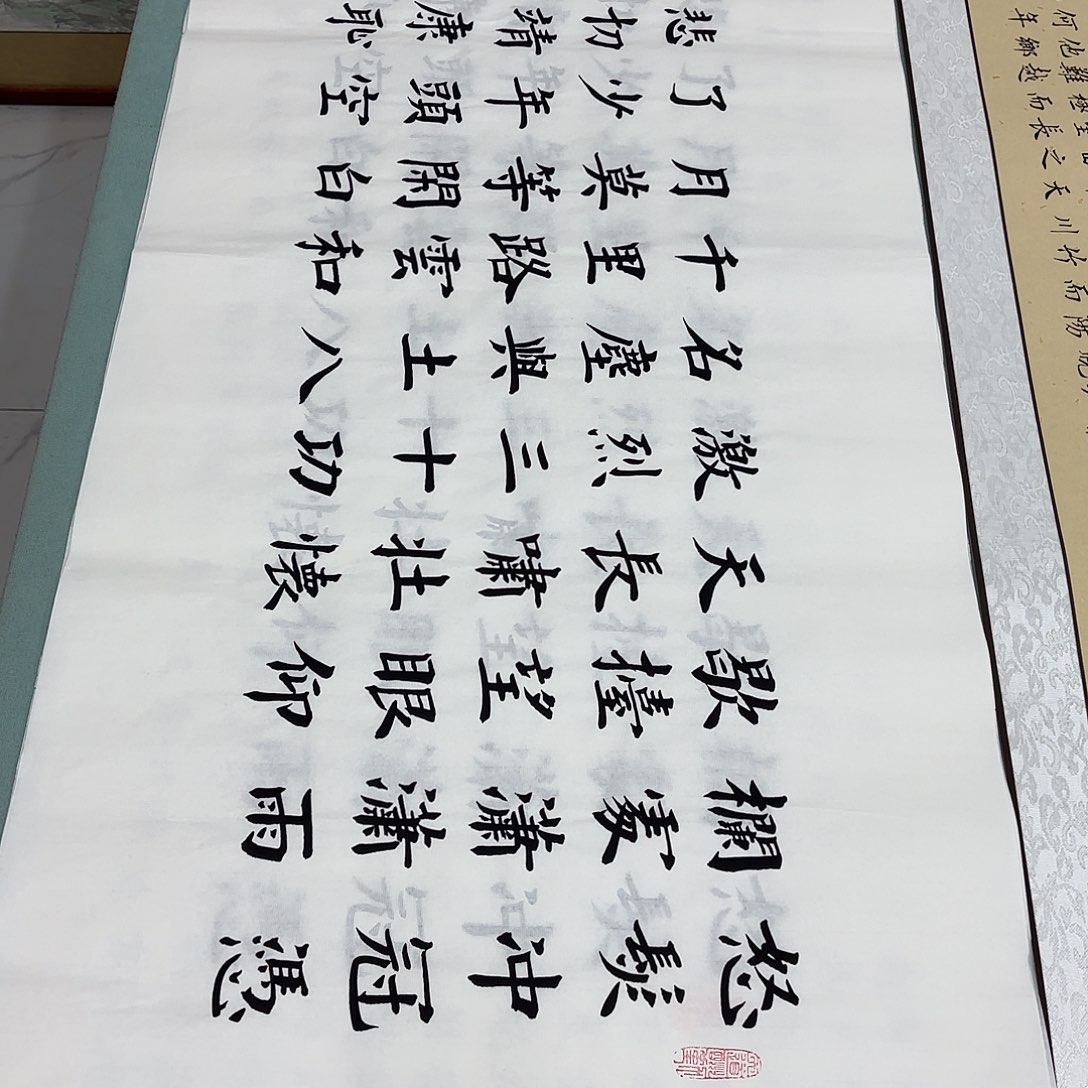 怒髮沖冠憑
欄處瀟瀟雨
歇擡望眼仰
天長嘯壯懷
激烈三十功
名塵與土八
千里路雲和
月莫等閒白
了少年頭空
悲切靖康耻